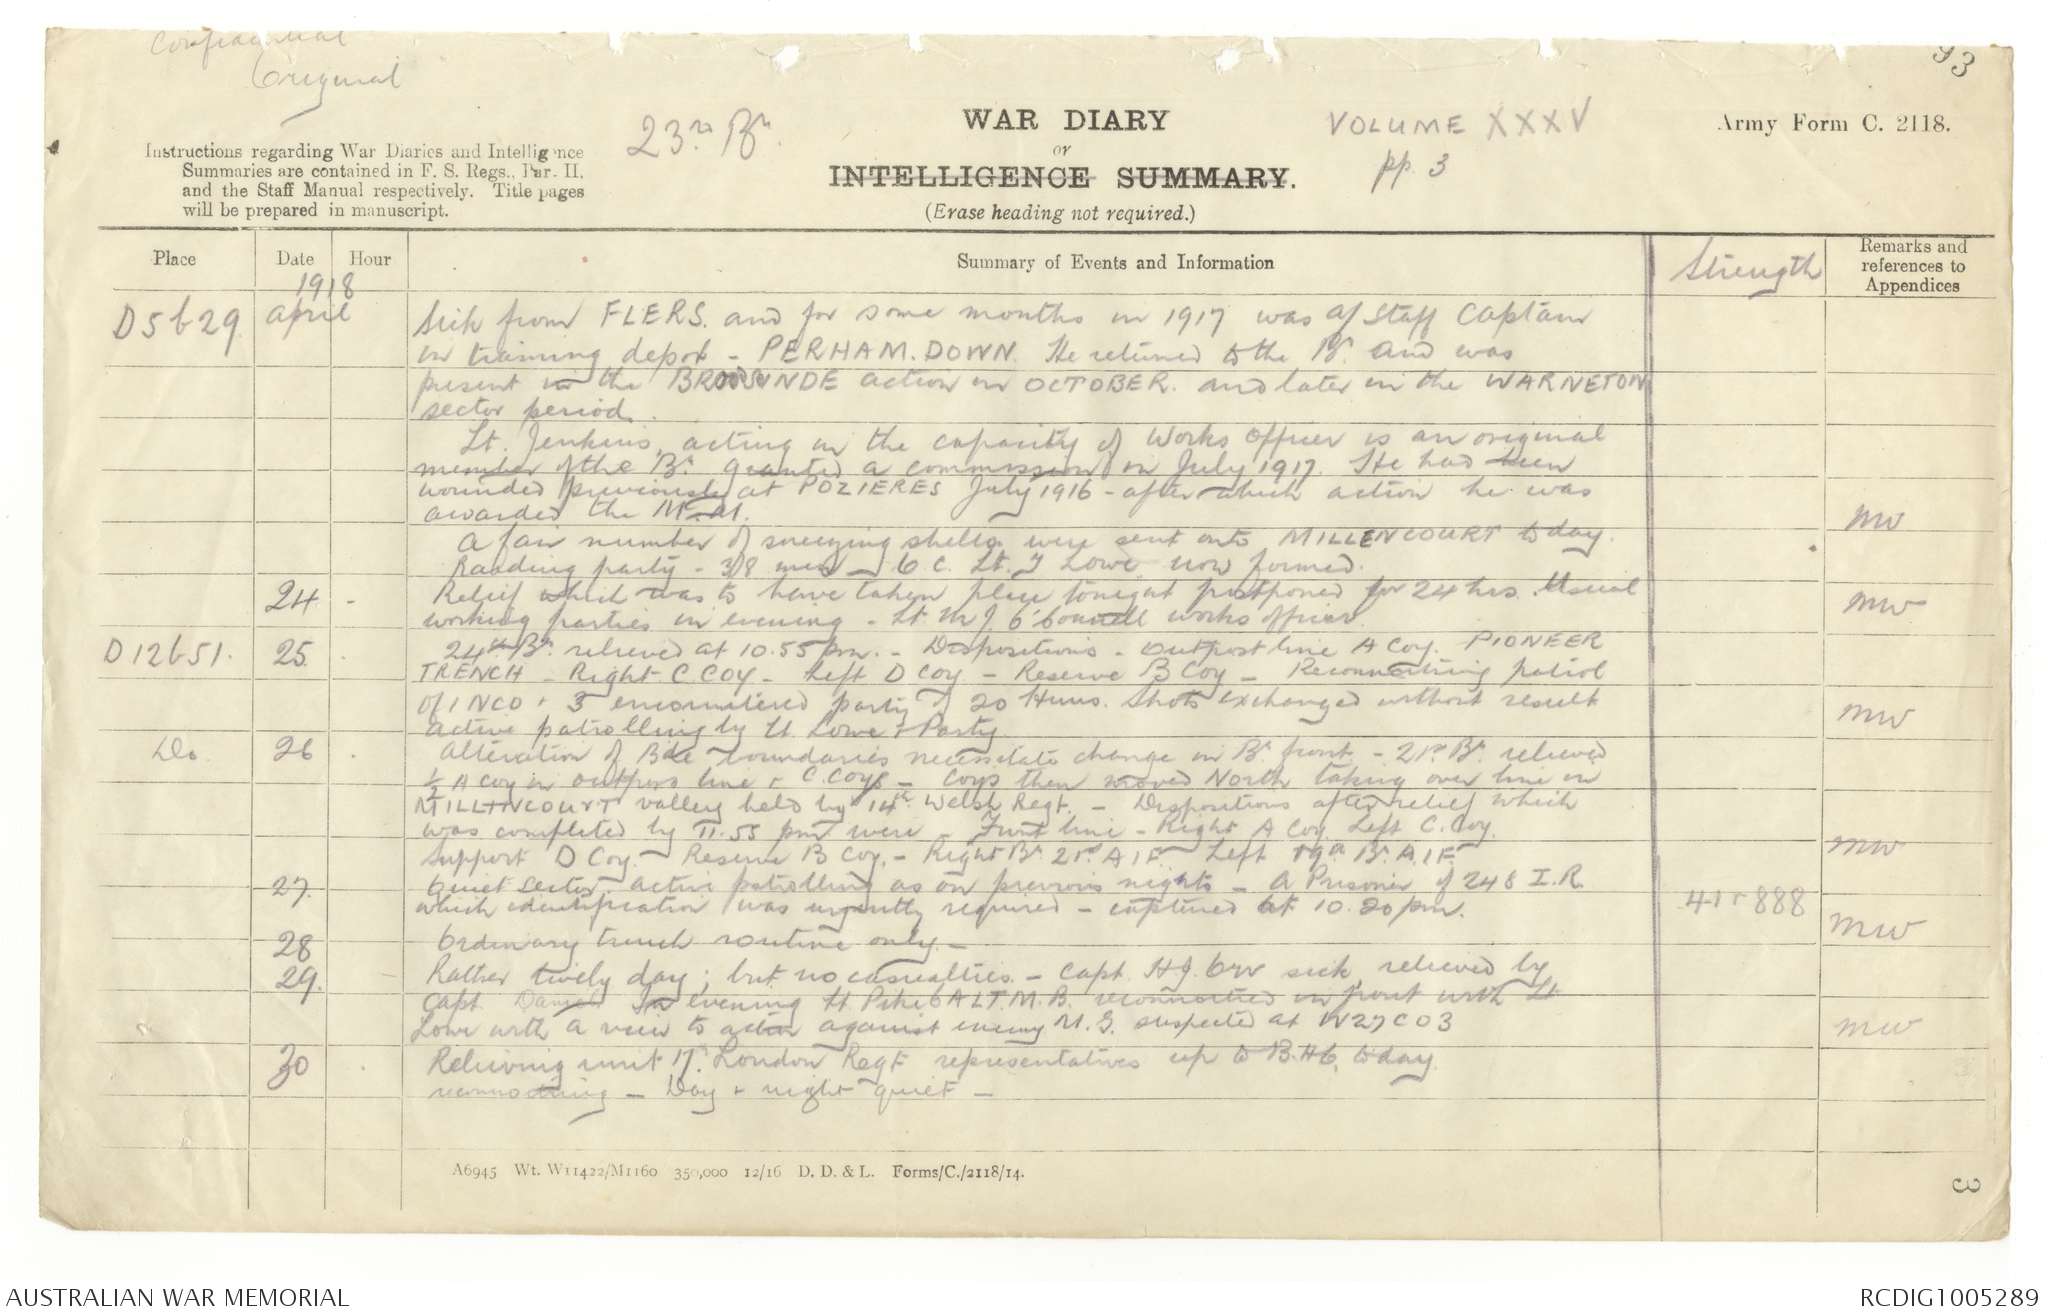 Confidential
Original
93
23rd Bn.
WAR DIARY
or
INTELLIGENCE SUMMARY.
(Erase heading not required.)
VOLUME XXXV
pp. 3
Army Form C. 2118.
Instructions regarding War Diaries and Intelligence
Summaries are contained in F. S. Regs., Par. II.
and the Staff Manual respectively. Title pages
will be prepared in manuscript.
Place
Date
Hour
Summary of Events and Information
Strength
Remarks and
references to
Appendices
1918
D5b29 April Sick from FLERS. and for some months in 1917 was a/ Staff Captain
in training depot - PERHAM. DOWN. He returned to the Bn. and was
present in the action in OCTOBER. and later in the WARNETON
sector period.
Lt. Jenkins, acting in the capacity of Works Officer is an original
member of the Bn granted a commission in July 1917. He had been
wounded previously at POZIERES July 1916 - after which action he was
awarded the M.M. MW
A fair number of sneezing shells were sent onto MILLENCOURT today.
Raading party - 38 men - O.C. Lt. J Lowe now formed.
24 - Relief which was to have taken place tonight postponed for 24 hrs. Usual MW
working parties in evening - Lt M J O'Connell works officer.
D12b51. 25. 24th Bn. relieved at 10.55 pm. - Dispositions - Outpost line A Coy. PIONEER
TRENCH - Right C COY - Left D Coy - Reserve B Coy - Reconnoitring patrol
of 1 NCO + 3 encountered party of 20 Huns. Shots exchanged without result MW
active patrolling by Lt. Lowe + Party
Do. 26 Alteration of Bde boundaries necessitate change in Bn. front - 21st Bn. relieved
1/2 A Coy in outpost line + C. Coy - Coys then moved North taking over line in
MILLENCOURT valley held by 14th Welsh Regt. - Dispositions after relief which
was completed by 11.55 pm were - Front line - Right A Coy. Left C. Coy.
Support D Coy. - Reserve B Coy. - Right Bn. 21st A.I.F. Left 19th Bn. A.I.F. MW
27. Quiet Sector. active patrolling as on previous nights - A Prisoner of 248 I.R.
which identification was urgently required - captured at 10.20 pm. 41+888
MW
28 Ordinary trench routine only -
29. Rather lively day; but no casualties - Capt. H.J. Orr sick, relieved by
Capt. Daniels In evening Lt Pike 6 A L.T.M.B. reconnoitred in front with Lt
Lowe with a view to action against enemy M.G. suspected at W27C03 MW
30 Relieving unit London Regt representatives up to B.HQ. today
reconnoitring - Day + night quiet -
A6945 Wt. W11422/M1160 350,000 12/16 D. D. & L. Forms/C./2118/14.
3
AUSTRALIAN WAR MEMORIAL
RCDIG1005289